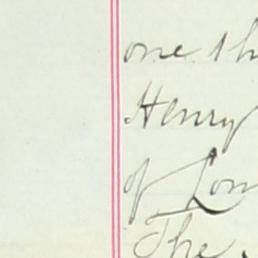 one th
Henry
of Lon
The